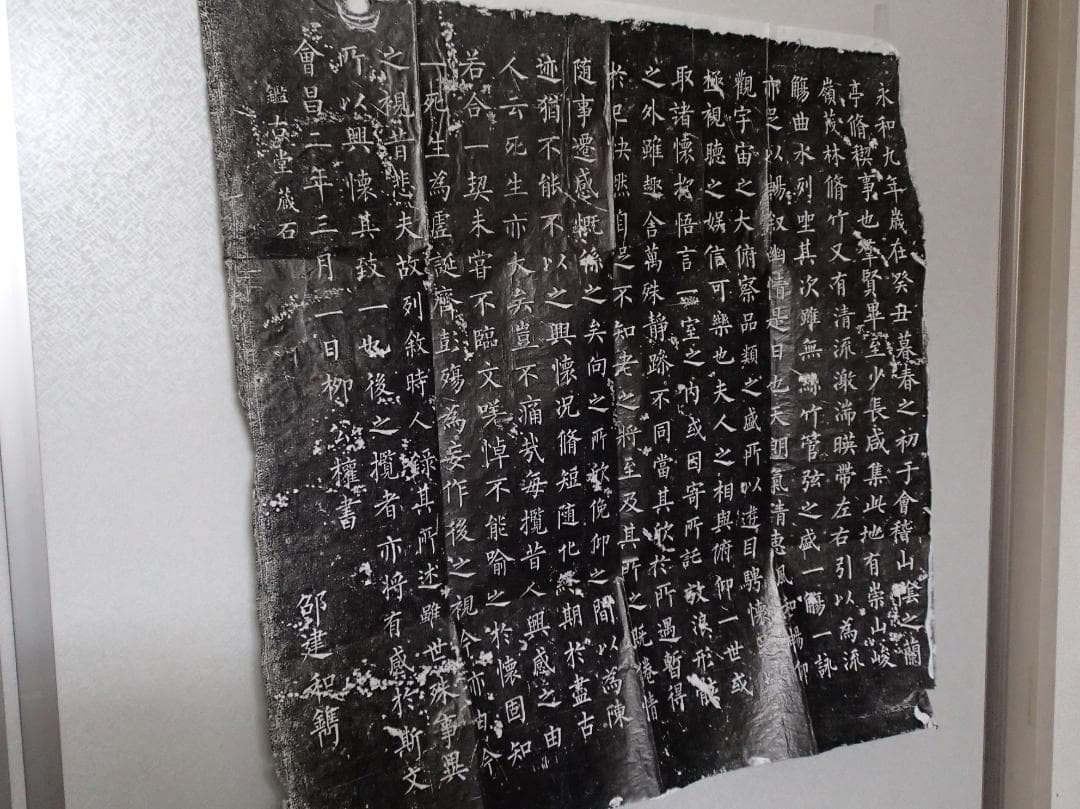 永和九年歲在癸丑暮春之初于會稽山陰之蘭
亭脩稧事也羣賢畢至少長咸集此地有崇山峻
嶺茂林脩竹又有清流激湍暎帶左右引以為流
觴曲水列坐其次雖無絲竹管弦之盛一觴一詠
亦足以暢叙幽情是日也天朗氣清惠風和暢仰
觀宇宙之大俯察品類之盛所以遊目騁懷
極視聽之娛信可樂也夫人之相與俯仰一世或
取諸懷抱悟言一室之内或因寄所託放浪形骸
之外雖趣舍萬殊靜躁不同當其欣於所遇暫得
於己快然自足不知老之將至及其所之既惓情
隨事遷感慨係之矣向之所欣俛仰之間以為陳
迹猶不能不以之興懷况脩短隨化終期於盡古
人云死生亦大矣豈不痛哉每攬昔人興感之由
若合一契未嘗不臨文嗟悼不能喻之於懷固知
一死生為虛誕齊彭殤為妄作後之視今亦由今
之視昔悲夫故列敘時人錄其所述雖世殊事異
所以興懷其致一也後之攬者亦將有感於斯文
會昌二年三月一日柳公權書 邹建和鐫
鑑古堂藏石